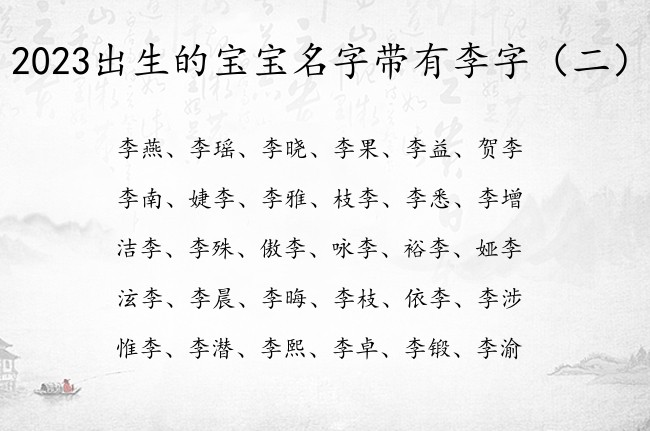 2023出生的宝宝名字带有李字（二）
李燕、李瑶、李晓、李果、李益、贺李
李南、婕李、李雅、枝李、李悉、李增
洁李、李殊、傲李、咏李、裕李、娅李
泫李、李晨、李晦、李枝、依李、李涉
惟李、李潜、李熙、李卓、李锻、李渝